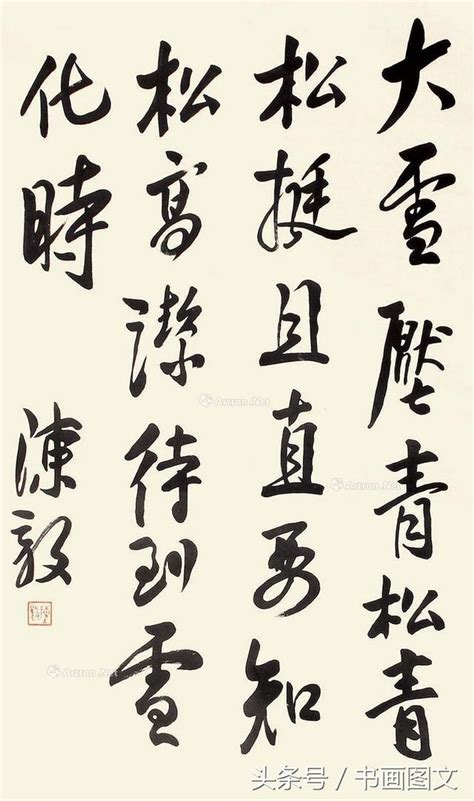 大雪壓青松青
松挺且直要知
松高潔待到雪
化時
陳毅
Artron.Net
Artron.Net
Artron.Net
头条号 / 书画图文